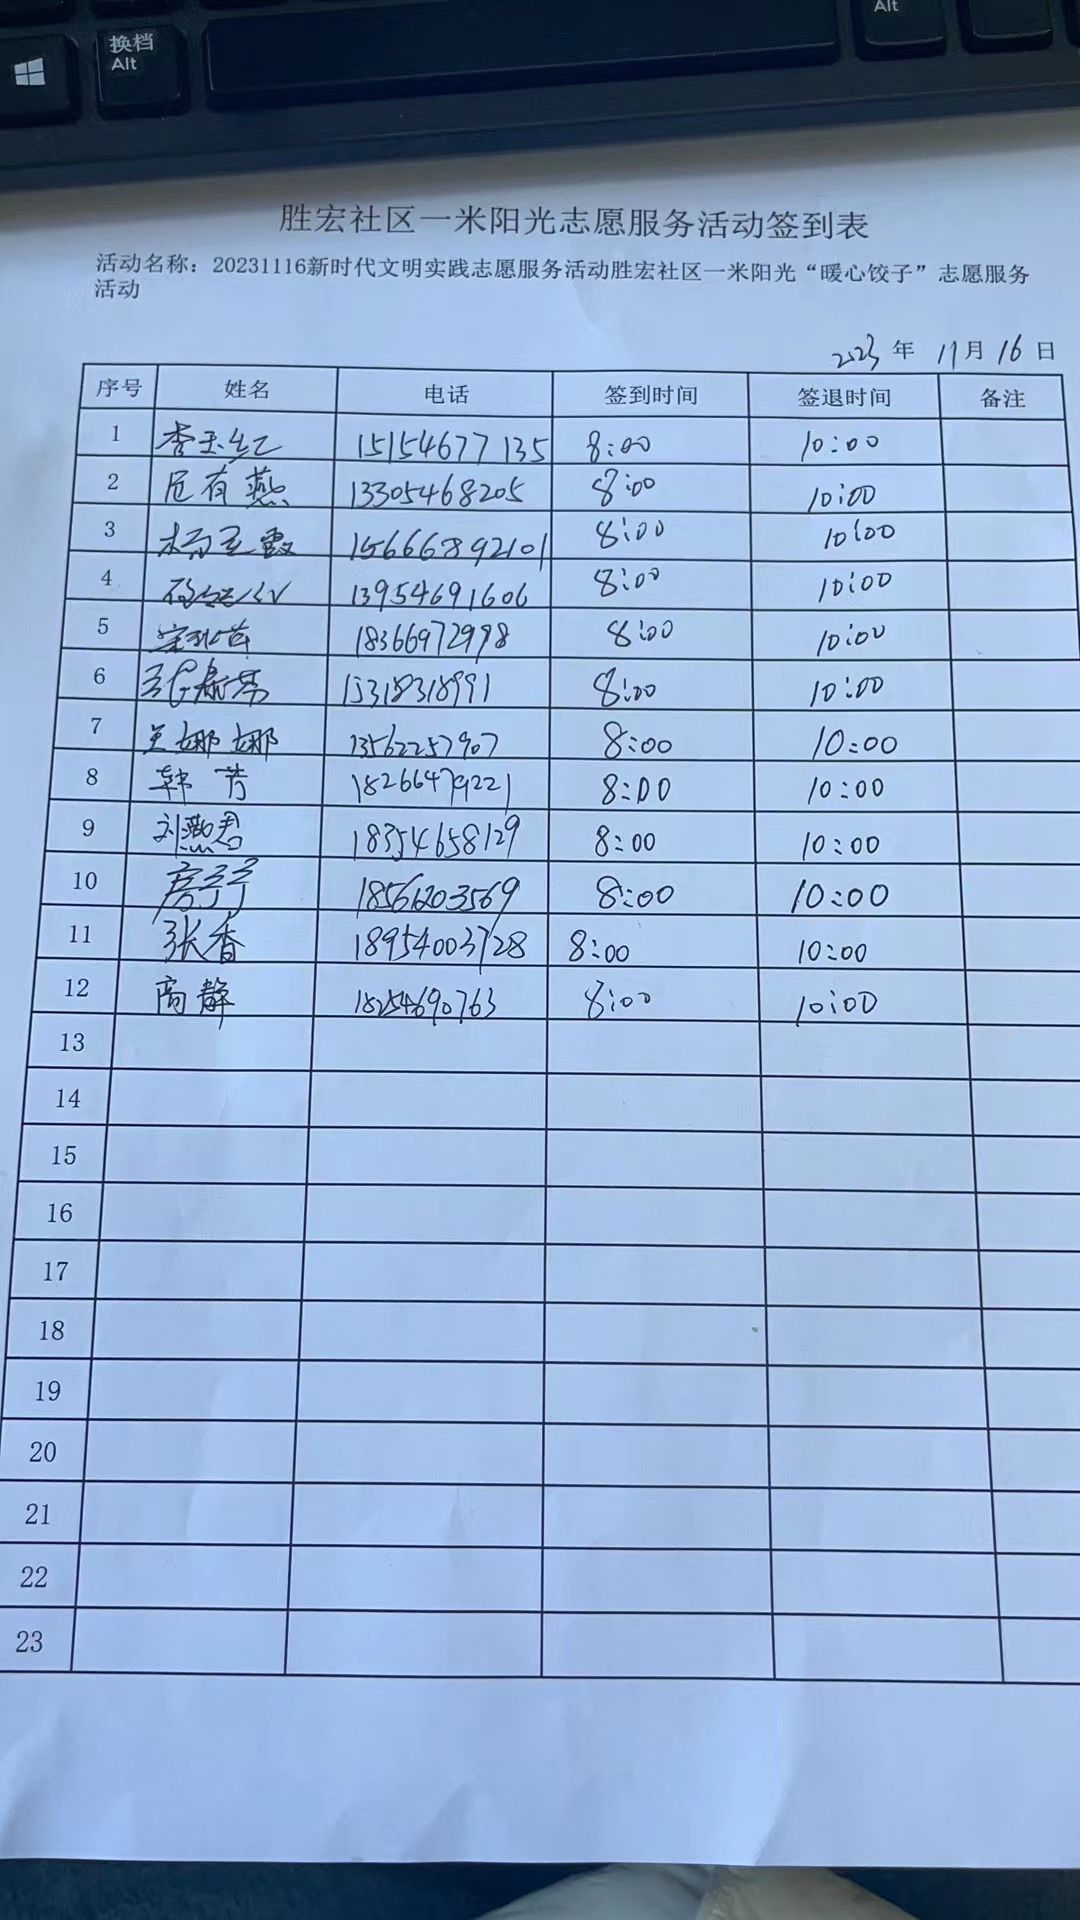 换档
Alt
Alt
胜宏社区一米阳光志愿服务活动签到表
活动名称：20231116新时代文明实践志愿服务活动胜宏社区一米阳光“暖心饺子”志愿服务
活动
2023 年 11 月 16 日
序号 姓名 电话 签到时间 签退时间 备注
1 李玉红 15154677135 8:00 10:00
2 有燕 13305468205 8:00 10:00
3 杨玉霞 15666892101 8:00 10:00
4 13954691606 8:00 10:00
5 18366972998 8:00 10:00
6 15318318991 8:00 10:00
7 娜娜 13562257907 8:00 10:00
8 韩芳 18266479221 8:00 10:00
9 刘燕君 18354658129 8:00 10:00
10 房 18561203569 8:00 10:00
11 张香 18954003728 8:00 10:00
12 商静 18254690763 8:00 10:00
13
14
15
16
17
18
19
20
21
22
23